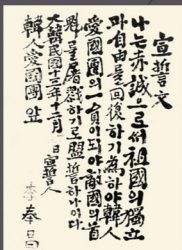 宣誓文
나는赤誠으로써祖國의獨立
과自由를回復하기爲하야韓人
愛國團의一員이되야敵國의首
魁를屠戮하기로盟誓하나이다
大韓民國十三年十二月 日 宣誓人
李奉昌
韓人愛國團앞